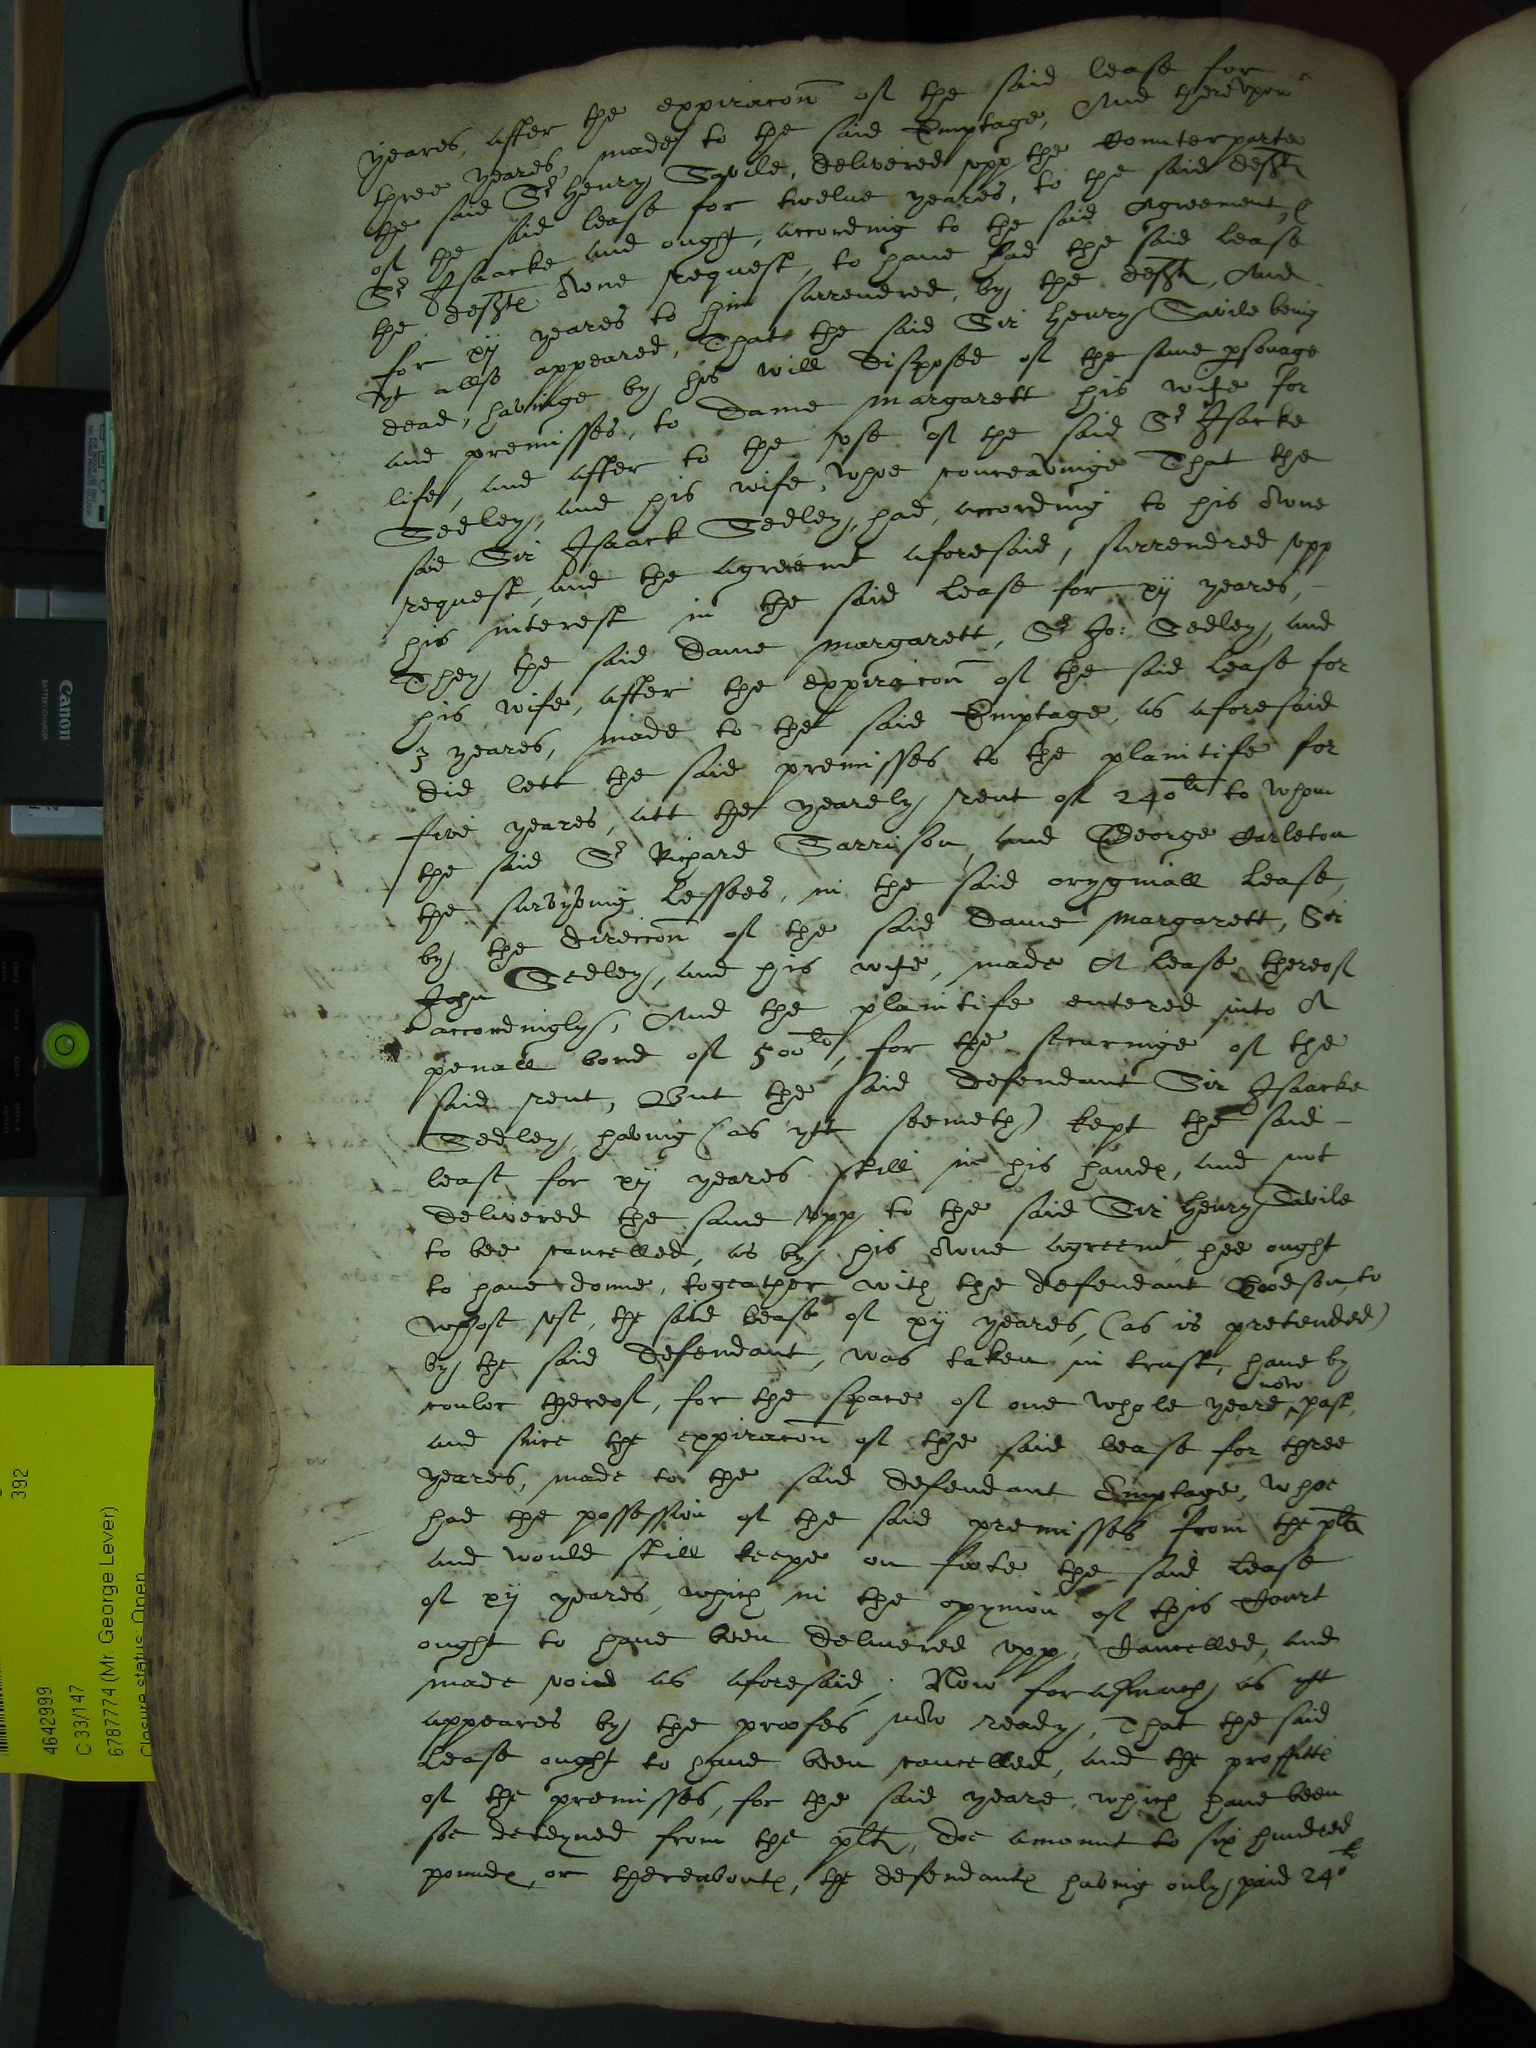 yeares, after the expiracon of the said lease for
three yeares, made to the said Emptage, And therevpon
the said Sr Henry Savile, delivered vpp the Counterparte
of the said lease for twelue yeares, to the said deft
Sr Isaacke and ought, according to the said Agreement, &
the defts owne request, to haue had the said lease
for xij yeares to him surrendred, by the deft, And
yt allso appeared, That the said Sir Henry Savile being
dead, havinge by his will disposed of the same psonage
and premisses, to Dame Margarett his wife for
life, and after to the vse of the said Sr Isacke
Sedley, and his wife, whoe conceavinge That the
said Sir Isaack Sedley, had, according to his owne
request, and the agreemt aforesaid, surrendred vpp
his interest in the said lease for xij yeares,
They the said Dame Margarett, Sr Jo: Sedley, and
his wife, after the expiracon of the said lease for
3 yeares, made to the said Emptage, as aforesaid
did lett the said premisses to the plaintife for
five yeares, att the yearely rent of 240li to whom
the said Sr Richard Harrison, and George Carleton
the survyving Lessees, in the said orygniall lease,
by the direccon of the said Dame Margarett, Sir
John Sedley, and his wife, made A lease thereof
accordingly, And the plaintife entered into A
penall bond of 500li, for the securinge of the
said rent, But the said defendant Sir Isaacke
Sedley, having (as ytt seemeth) kept the said
lease for xij yeares still in his hands, and not
delivered the same vpp to the said Sir Henry Savile
to bee cancelled, as by his owne agreemt hee ought
to haue donne, togeather with the defendant to
whose vse, the said lease of xij yeares, (as is pretended)
by the said defendant, was taken in trust, haue by
coulor thereof, for the space of one whole yeare now past,
and since the expiracon of the said lease for three
yeares, made to the said defendant Emptage, whoe
had the possession of the said premisses from the plt
and would still keepe on foote the said lease
of xij yeares, which in the opynion of this Court
ought to haue been delivered vpp, Cancelled, and
made void as aforesaid, Now forasmuch, as ytt
appeares by the proofes now ready, That the said
lease ought to haue been cancelled, and the proffitts
of the premisses, for the said yeare, which haue been
soe deteyned from the plt, doe amount to six hundred
pounds, or thereabouts, the defendants having only paid 240li
Canon
BATTERY CHARGER
392
4642999
C 33/147
6787774 (Mr. George Lever)
Closure status: Open